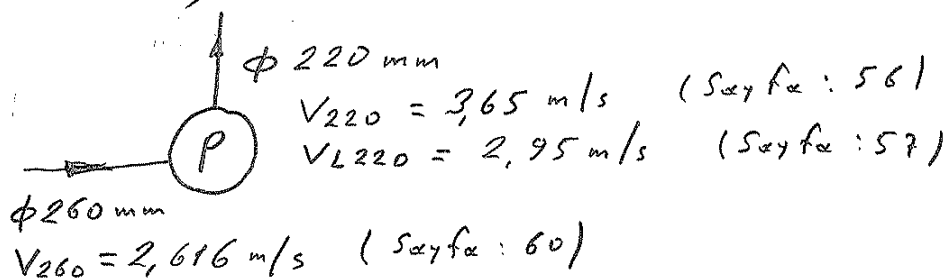 ϕ 220 mm
V220 = 3,65 m/s (Sayfa : 56)
VL220 = 2,95 m/s (Sayfa : 57)
P
ϕ260 mm
V260 = 2,616 m/s (Sayfa : 60)